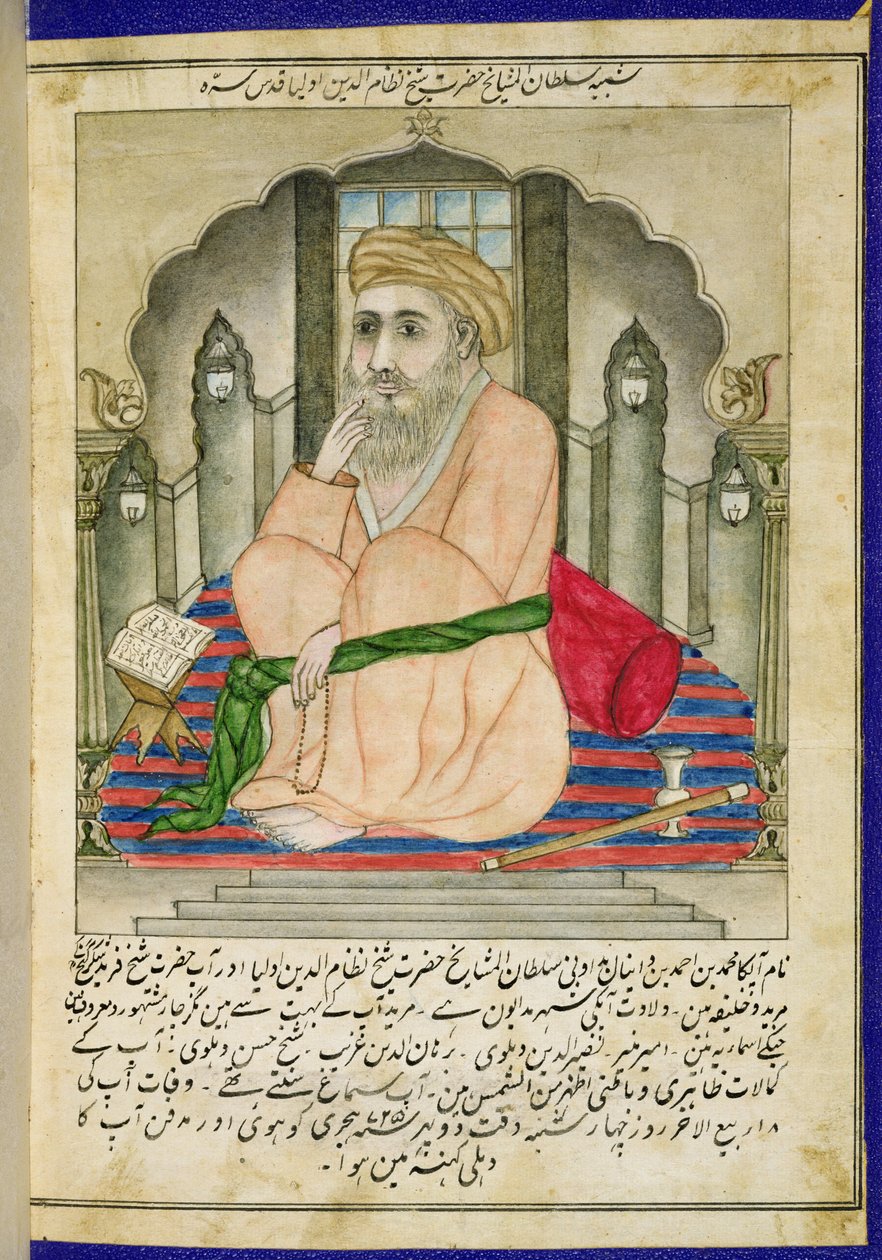 شبیہ سلطان المشایخ حضرت شیخ نظام الدین اولیا قدس سرّہ
نام آپکا محمد بن احمد بن دانیال بداونی سلطان المشایخ حضرت شیخ نظام الدین اولیا اور آپ حضرت شیخ فرید شکر گنج کے
مرید و خلیفہ ہین۔ ولادت آپکی شہر بدایون ہے۔ مرید آپ کے بہت سے ہین مگر چار مشہور و معروف ہین
جنکے اسماء یہ ہین۔ امیر نصیر الدین دہلوی۔ برہان الدین غریب۔ شیخ حسن دہلوی۔ آپ کے
کمالات ظاہری و باطنی اظہر من الشمس ہین۔ آپ سماع سنتے تھے۔ وفات آپ کی
۱۸ ربیع الآخر روز چہار شنبہ وقت دوپہر سنہ ۷۲۵ ہجری کو ہوئی اور مدفن آپ کا
دہلی کہنہ مین ہوا۔